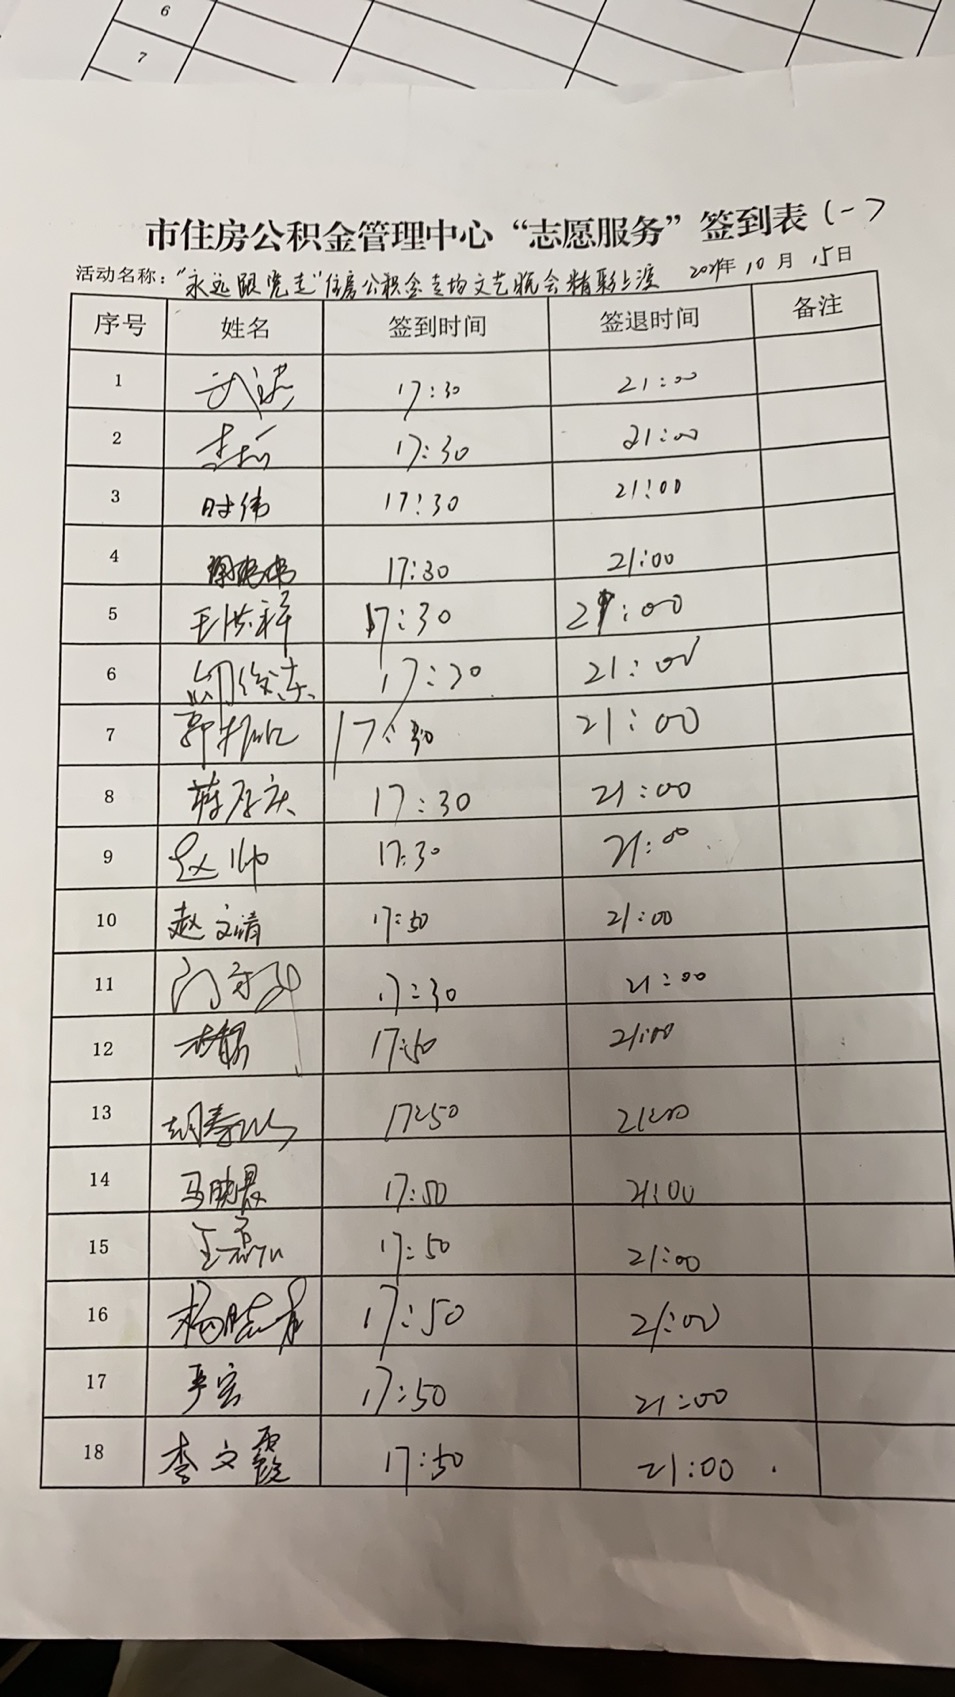 6
7
市住房公积金管理中心“志愿服务”签到表(一)
活动名称：“永远跟党走”住房公积金专场文艺晚会精彩上演 2021年10月15日
序号 姓名 签到时间 签退时间 备注
1 17:30 21:00
2 17:30 21:00
3 时伟 17:30 21:00
4 17:30 21:00
5 王洪祥 17:30 21:00
6 17:30 21:00
7 17:30 21:00
8 蒋厚庆 17:30 21:00
9 赵帅 17:30 21:00
10 赵文清 17:50 21:00
11 17:30 21:00
12 17:50 21:00
13 胡寿山 17:50 21:00
14 马晓晨 17:50 21:00
15 17:50 21:00
16 17:50 21:00
17 严宏 17:50 21:00
18 李文霞 17:50 21:00